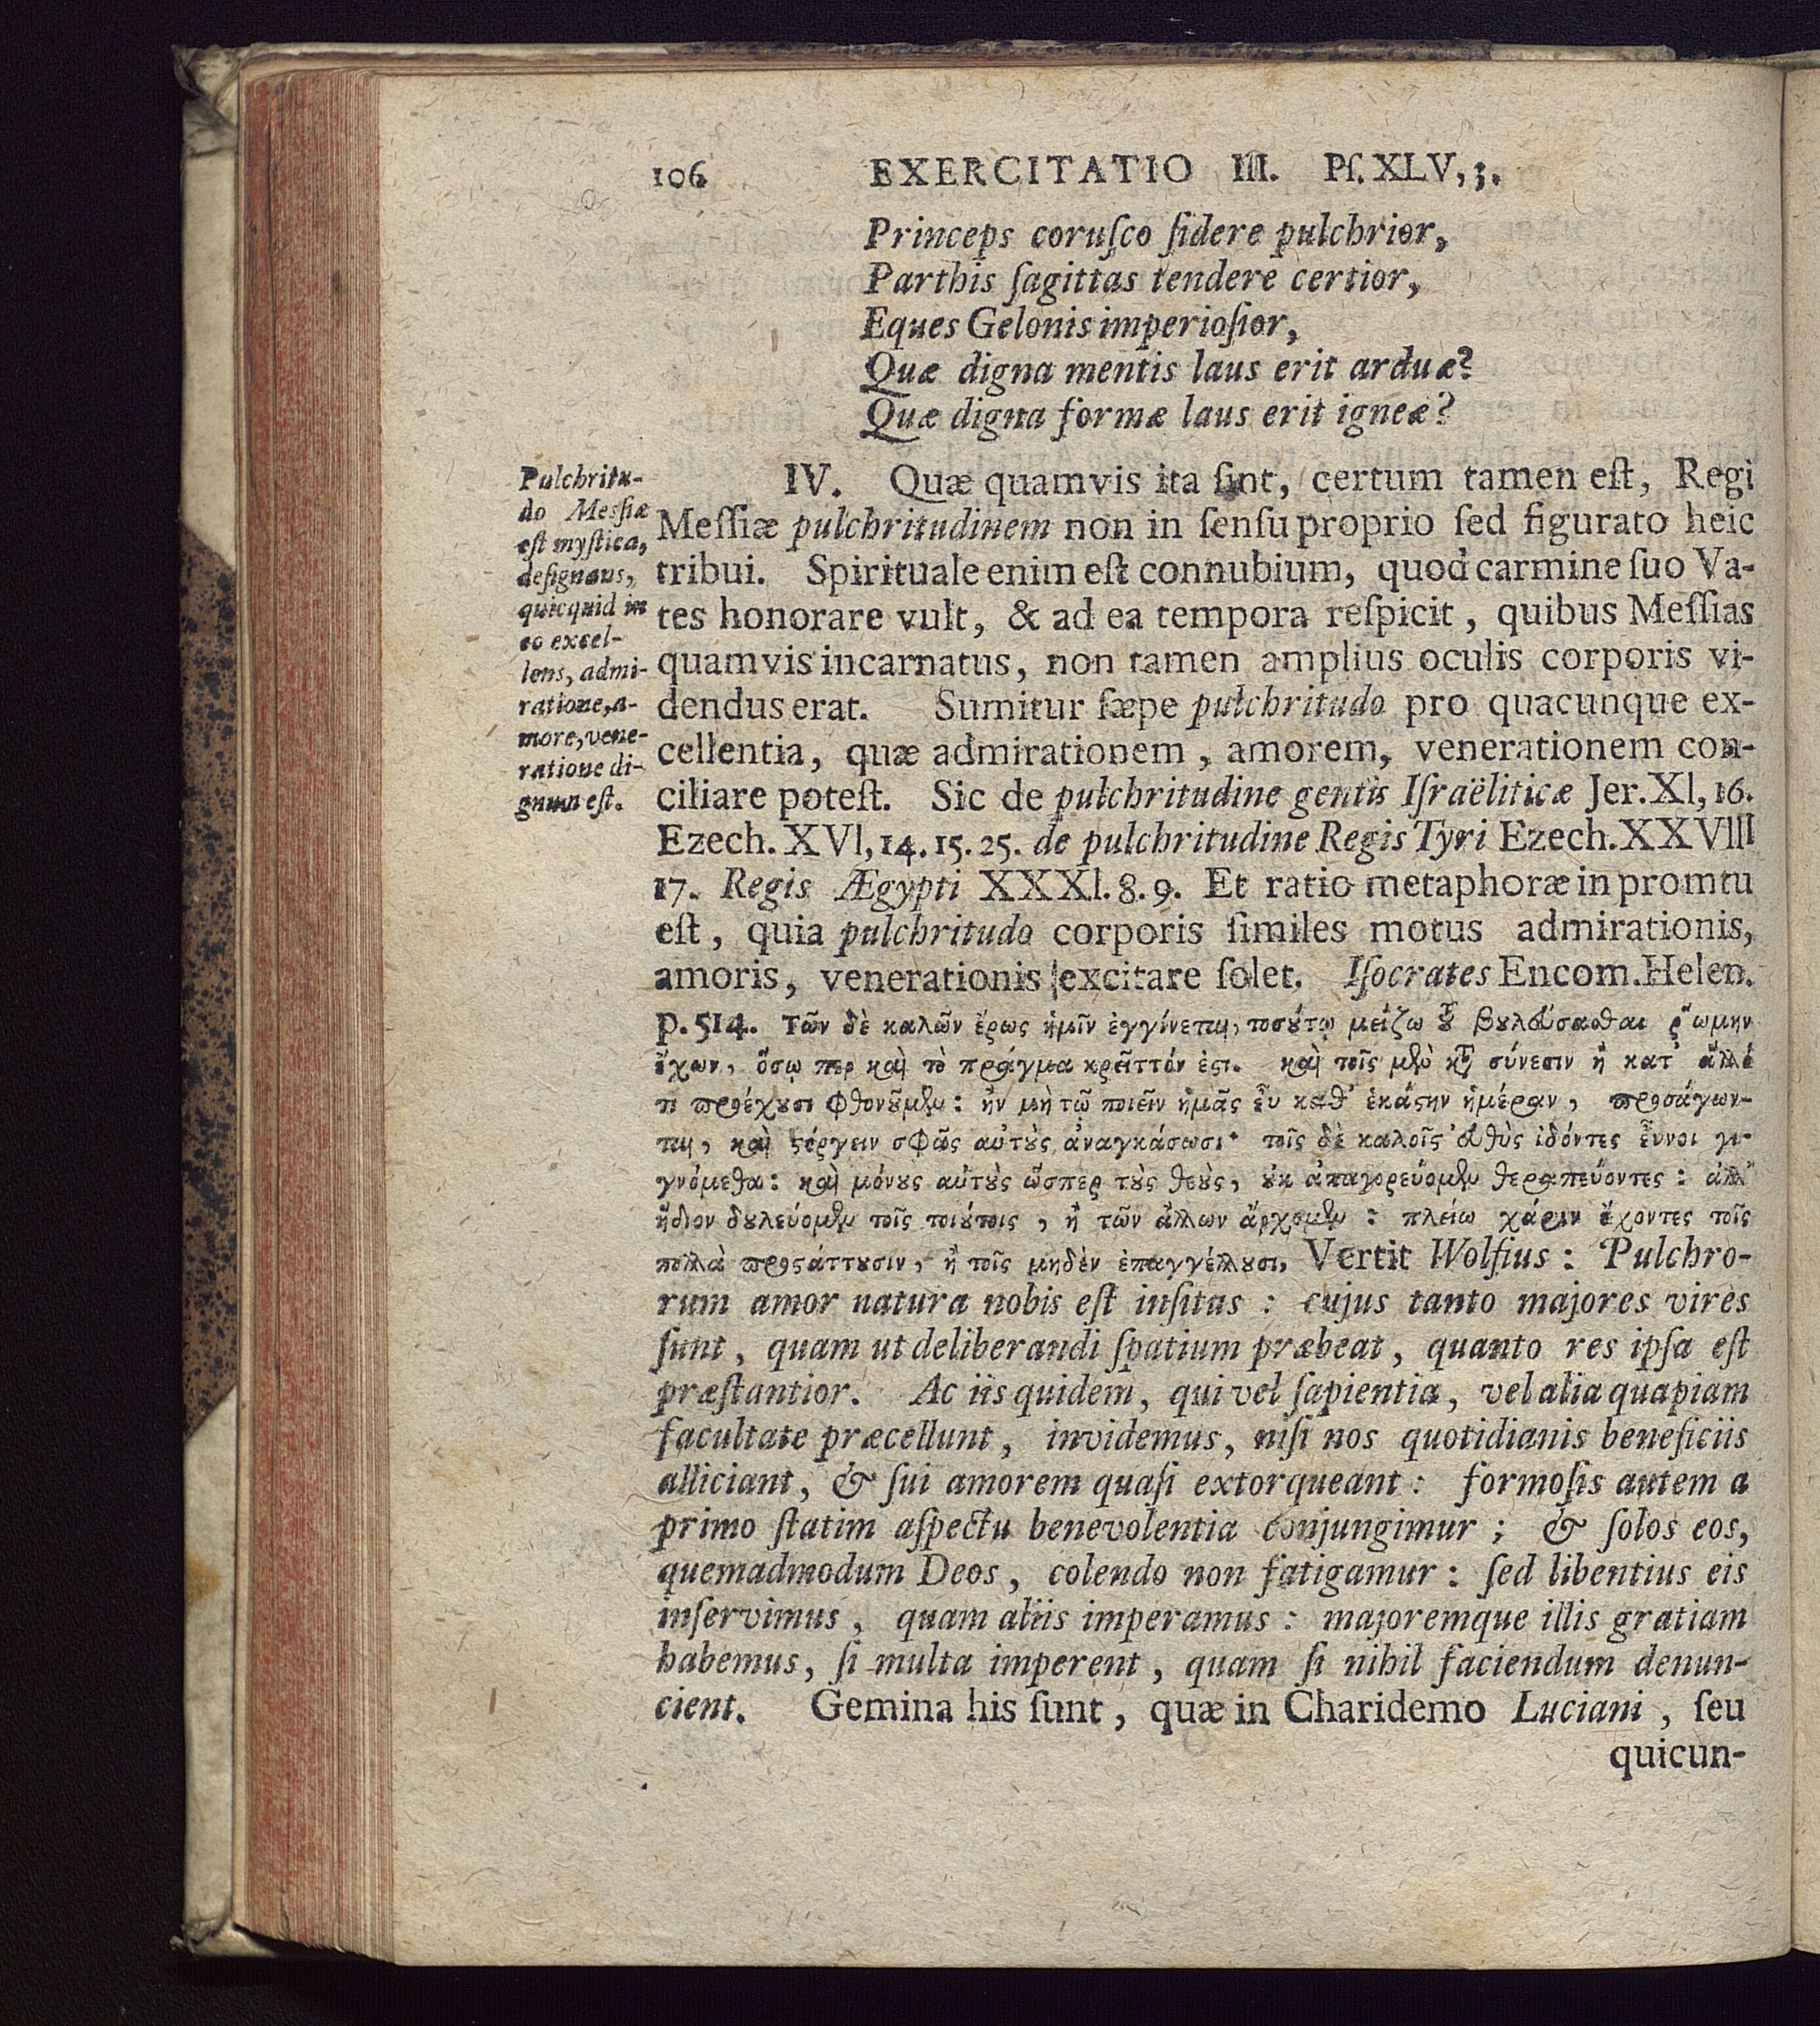 106 EXERCITATIO III. Pſ. XLV, 3.
Princeps coruſco ſidere pulchrior,
Parthis ſagittas tendere certior,
Eques Gelonis imperioſior,
Quæ digna mentis laus erit arduæ?
Quæ digna formæ laus erit igneæ?
Pulchritu-
do Meſſiæ
eſt myſtica,
deſignans,
quicquid in
eo excel-
lens, admi-
ratione, a-
more, vene-
ratione di-
gnum eſt.
IV. Quæ quamvis ita ſint, certum tamen eſt, Regi
Meſſiæ pulchritudinem non in ſenſu proprio ſed figurato heic
tribui. Spirituale enim eſt connubium, quod carmine ſuo Va-
tes honorare vult, & ad ea tempora reſpicit, quibus Meſſias
quamvis incarnatus, non tamen amplius oculis corporis vi-
dendus erat. Sumitur ſæpe pulchritudo pro quacunque ex-
cellentia, quæ admirationem, amorem, venerationem con-
ciliare poteſt. Sic de pulchritudine gentis Iſraëliticæ Jer. XI, 16.
Ezech. XVI, 14. 15. 25. de pulchritudine Regis Tyri Ezech. XXVIII
17. Regis Ægypti XXXI. 8. 9. Et ratio metaphoræ in promtu
eſt, quia pulchritudo corporis ſimiles motus admirationis,
amoris, venerationis excitare ſolet. Iſocrates Encom. Helen.
p. 514. Τῶν δὲ καλῶν ἔρως ἡμῖν ἐγγίνεται, τοσούτῳ μείζω τοῦ βουλεύσασθαι ῥώμην
ἔχων, ὅσῳ περ καὶ τὸ πρᾶγμα κρεῖττόν ἐστι. καὶ τοῖς μὲν κατὰ σύνεσιν ἢ κατ' ἄλλό
τι προέχουσι φθονοῦμεν: ἢν μὴ τῷ ποιεῖν ἡμᾶς εὖ καθ' ἑκάστην ἡμέραν, προσάγων-
ται, καὶ στέργειν σφᾶς αὐτοὺς ἀναγκάσωσι· τοῖς δὲ καλοῖς εὐθὺς ἰδόντες εὖνοι γι-
γνόμεθα: καὶ μόνους αὐτοὺς ὥσπερ τοὺς θεοὺς, οὐκ ἀπαγορεύομεν θεραπεύοντες: ἀλλ'
ἥδιον δουλεύομεν τοῖς τοιούτοις, ἢ τῶν ἄλλων ἄρχομεν: πλείω χάριν ἔχοντες τοῖς
πολλὰ προστάττουσιν, ἢ τοῖς μηδὲν ἐπαγγέλλουσι, Vertit Wolfius: Pulchro-
rum amor natura nobis eſt inſitus: cujus tanto majores vires
ſunt, quam ut deliberandi ſpatium præbeat, quanto res ipſa eſt
præſtantior. Ac iis quidem, qui vel ſapientia, vel alia quapiam
facultate præcellunt, invidemus, niſi nos quotidianis beneficiis
alliciant, & ſui amorem quaſi extorqueant: formoſis autem a
primo ſtatim aſpectu benevolentia conjungimur; & ſolos eos,
quemadmodum Deos, colendo non fatigamur: ſed libentius eis
inſervimus, quam aliis imperamus: majoremque illis gratiam
habemus, ſi multa imperent, quam ſi nihil faciendum denun-
cient. Gemina his ſunt, quæ in Charidemo Luciani, ſeu
quicun-